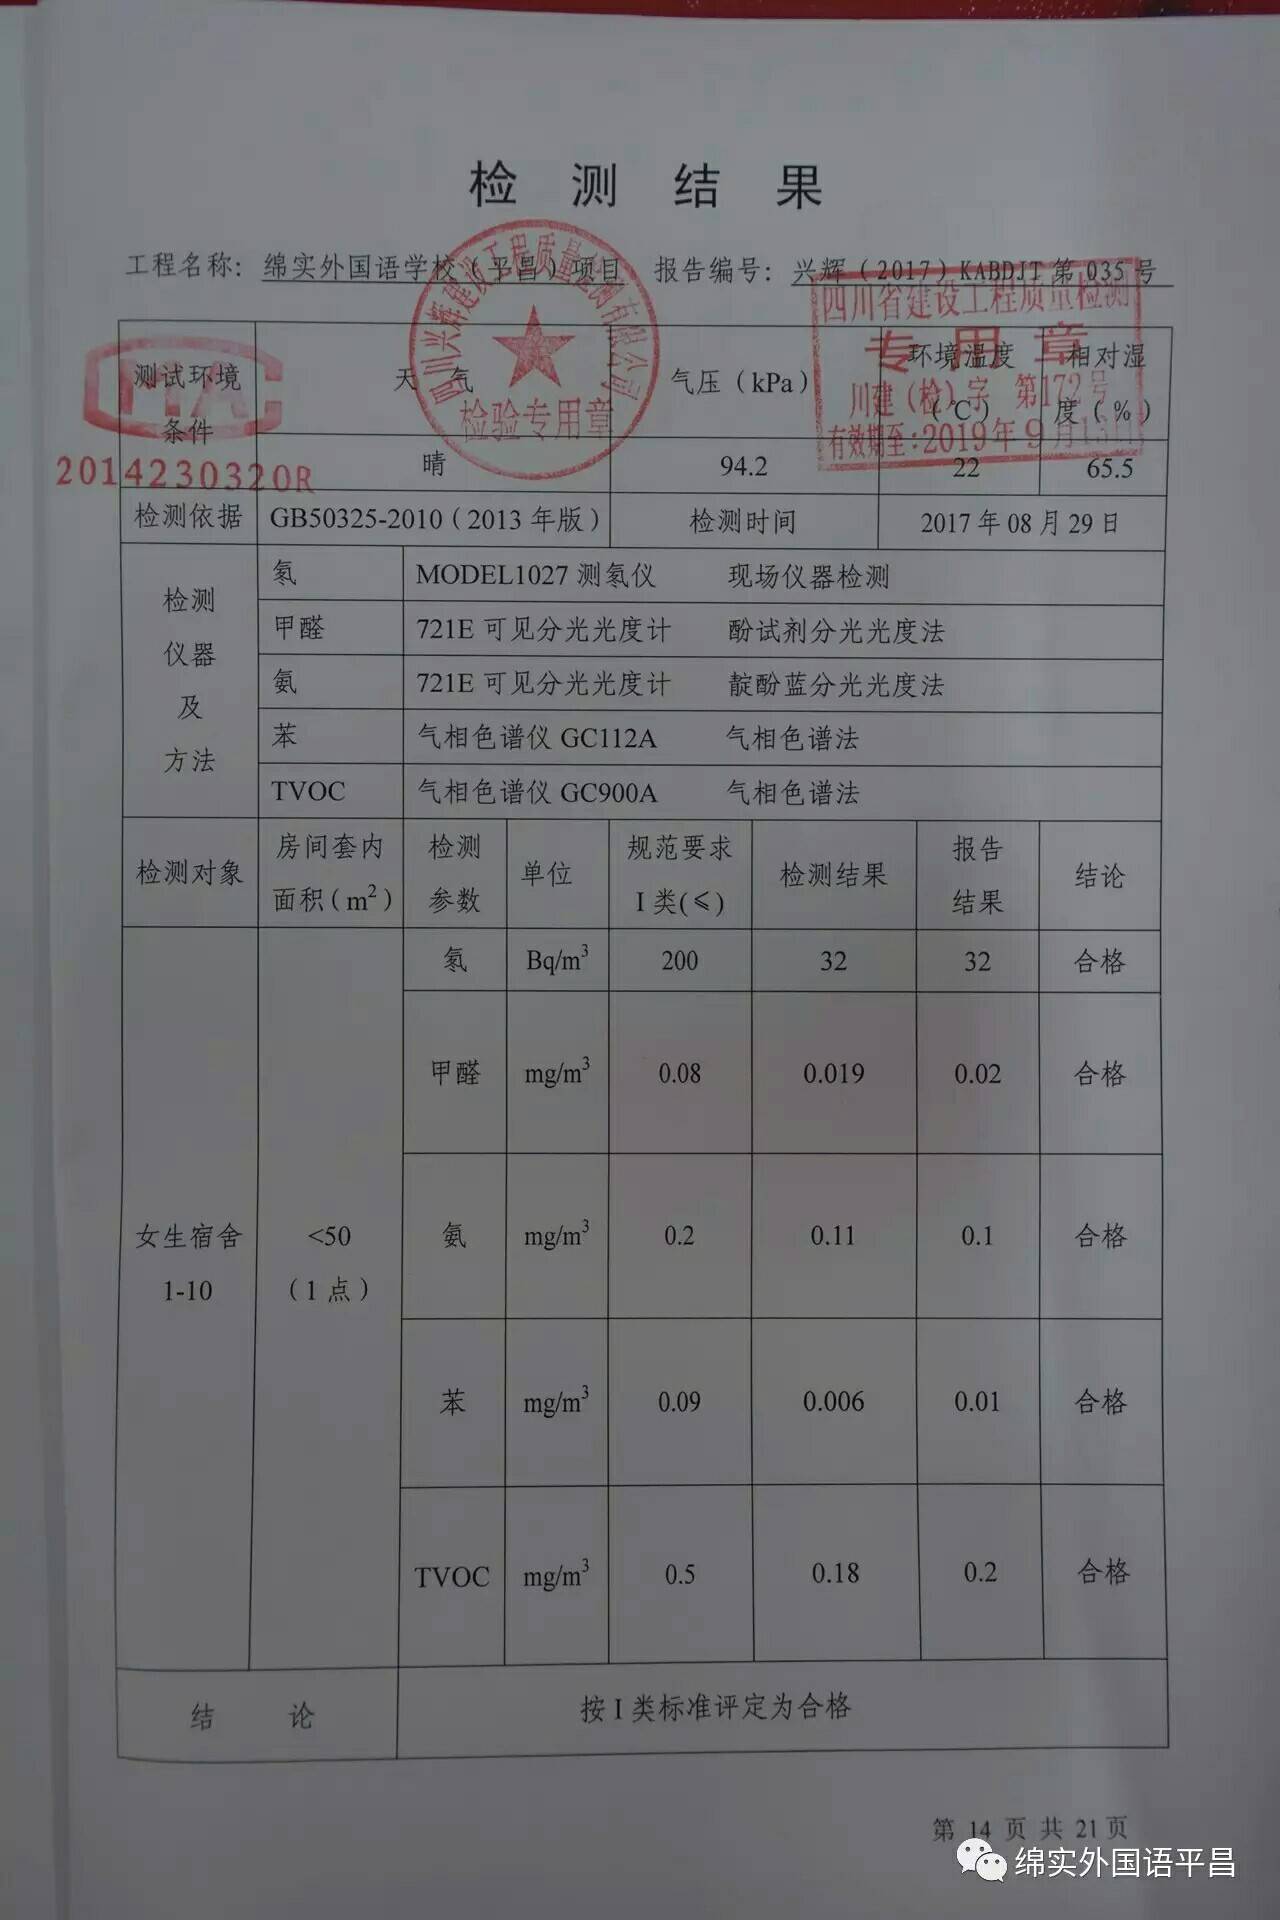 检测结果
工程名称：绵实外国语学校（平昌）项目 报告编号：兴辉（2017）KABDJT 第 035 号
四川兴辉建设工程质量检测有限公司
检验专用章
四川省建设工程质量检测
专用章
川建（检）字 第172号
有效期至：2019年9月13日
MA
2014230320R
测试环境条件 天气 气压（kPa） 环境温度（℃） 相对湿度（%）
晴 94.2 22 65.5
检测依据 GB50325-2010（2013 年版） 检测时间 2017 年 08 月 29 日
检测仪器及方法
氡 MODEL1027 测氡仪 现场仪器检测
甲醛 721E 可见分光光度计 酚试剂分光光度法
氨 721E 可见分光光度计 靛酚蓝分光光度法
苯 气相色谱仪 GC112A 气相色谱法
TVOC 气相色谱仪 GC900A 气相色谱法
检测对象 房间套内面积（m²） 检测参数 单位 规范要求 I 类(≤) 检测结果 报告结果 结论
女生宿舍 1-10 <50（1 点）
氡 Bq/m³ 200 32 32 合格
甲醛 mg/m³ 0.08 0.019 0.02 合格
氨 mg/m³ 0.2 0.11 0.1 合格
苯 mg/m³ 0.09 0.006 0.01 合格
TVOC mg/m³ 0.5 0.18 0.2 合格
结论 按 I 类标准评定为合格
第 14 页 共 21 页
绵实外国语平昌